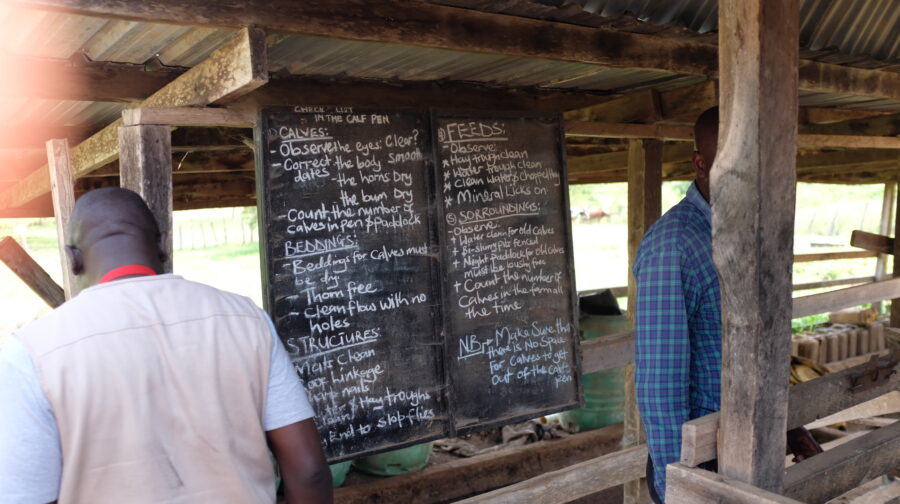 CHECK LIST
IN THE CALF PEN
① CALVES:
- Observe the eyes: Clear?
- Correct the body smooth
dates - the horns Dry
- the bum Dry
- Count the number of
calves in pen & paddock
BEDDINGS:
- Beddings for calves must
be dry
- Thorn free
- Clean flow with no
holes
STRUCTURES:
Mats Clean
Linkage
nails
& Hay troughs
to stop flies
④ FEEDS:
- Observe:
* Hay trough clean
* Water trough clean
* Clean water & chopped hay
* Mineral Licks on
⑤ SORROUNDINGS:
- Observe.
+ Water clean for old calves
+ fenced
+ Night Paddock for old calves
must be
+ Count the number if
Calves in the farm all
the time.
NB:- Make Sure that
there is No Space
for Calves to get
out of the Calf
pen